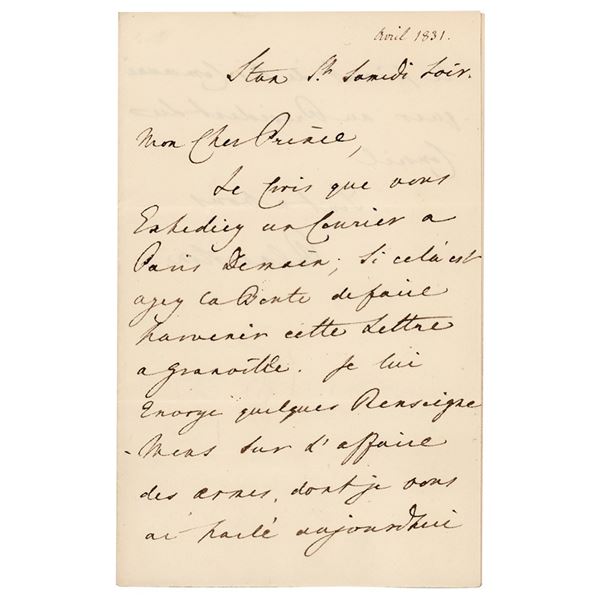 Avril 1831.
Stan St. Samedi Soir.
Mon Cher Prince,
Je Crois que vous
Expediez un Courier a
Paris Demain; Si cela est
ayez la Bonte de faire
parvenir cette Lettre
a Granville. Je lui
Envoye quelques Renseigne
-mens sur l'affaire
des armes, dont je vous
ai parlé aujourdhui